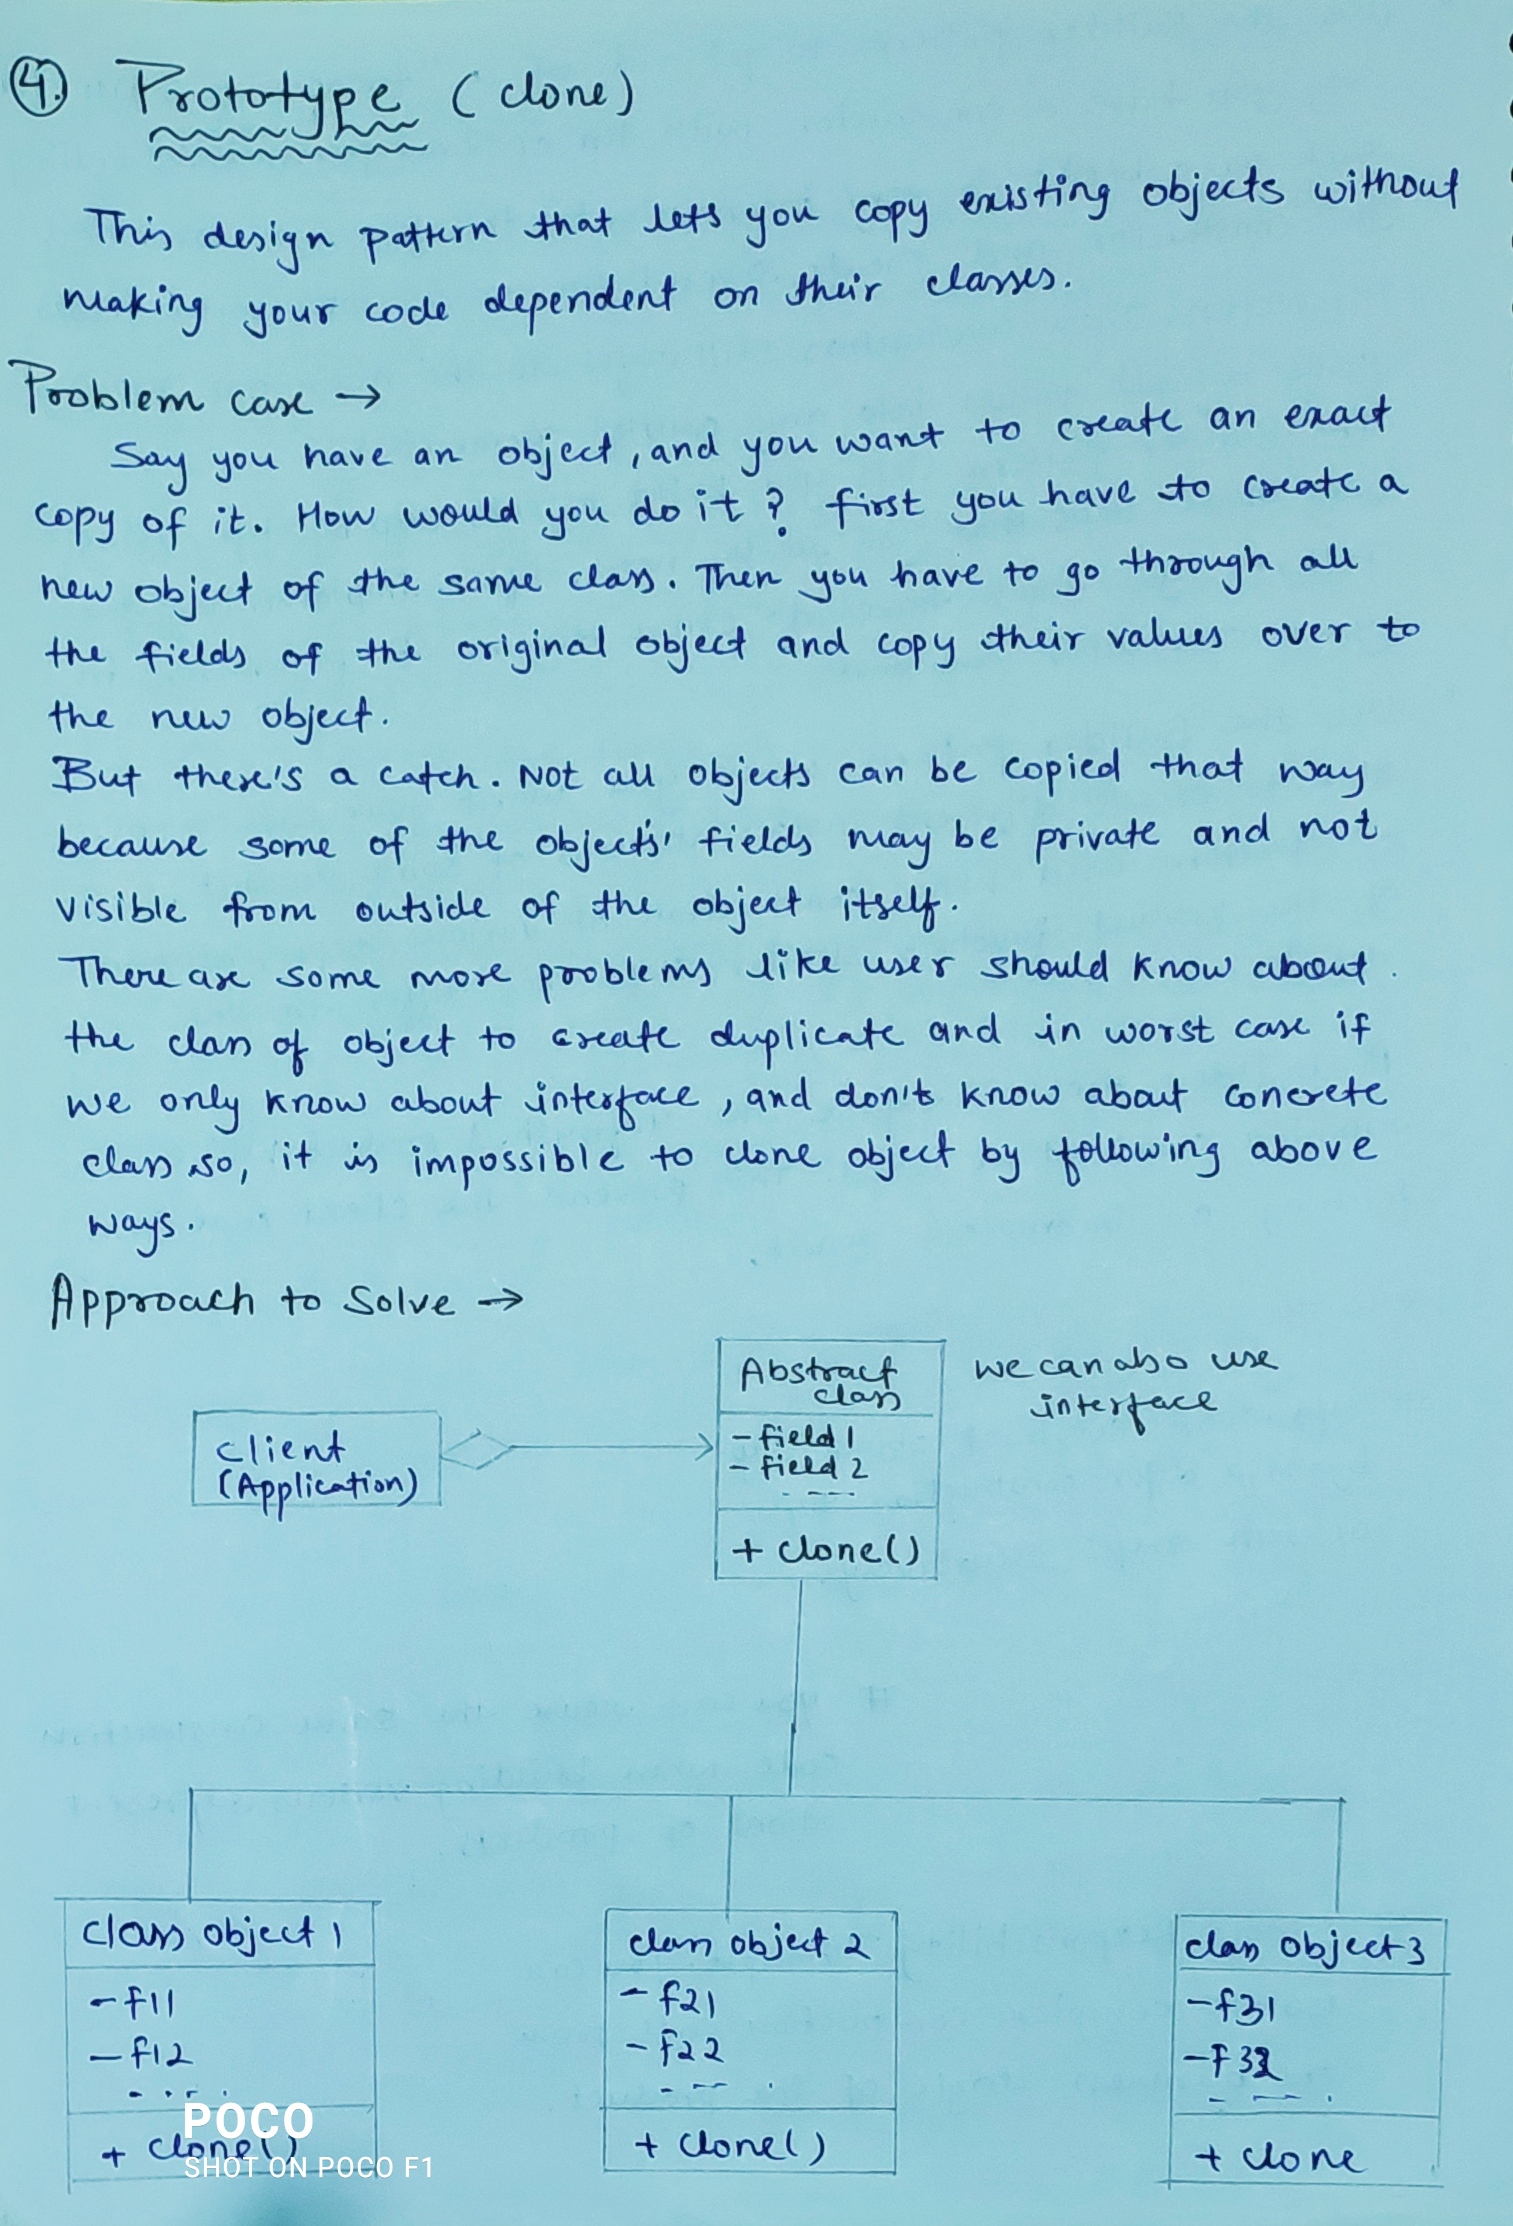 4. Prototype (clone)
This design pattern that lets you copy existing objects without
making your code dependent on their classes.
Problem case →
Say you have an object, and you want to create an exact
copy of it. How would you do it ? first you have to create a
new object of the same class. Then you have to go through all
the fields of the original object and copy their values over to
the new object.
But there's a catch. Not all objects can be copied that way
because some of the objects' fields may be private and not
visible from outside of the object itself.
There are some more problems like user should know about
the class of object to create duplicate and in worst case if
we only know about interface, and don't know about concrete
class so, it is impossible to clone object by following above
ways.
Approach to Solve →
Client
(Application)
Abstract
class
- field 1
- field 2
+ clone()
we can also use
interface
class object 1
- f11
- f12
+ clone()
class object 2
- f21
- f22
+ clone()
class object 3
- f31
- f32
+ clone
POCO
SHOT ON POCO F1